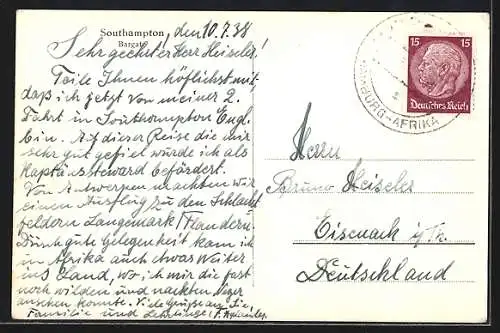 Southampton, den 10.7.38
Bargate
Sehr geehrter Herr Heiseler!
Teile Ihnen höflichst mit,
daß ich jetzt von meiner 2.
Fahrt in Southampton Engl.
bin. Auf dieser Reise die mir
sehr gut gefiel wurde ich als
Kaptänsteward befördert.
Von Antwerpen machten wir
einen Ausflug zu den Schlacht
feldern Langemark/Flandern.
Durch gute Gelegenheit kam ich
in Afrika auch etwas weiter
ins Land, wo ich mir die fast
noch wilden und nackten Neger
ansehen konnte. Viele Grüße an Sie,
Familie und Lehrlinge!
15 15
Deutsches Reich
HAMBURG-AFRIKA
Herrn
Bruno Heiseler
Eisenach i/Th.
Deutschland